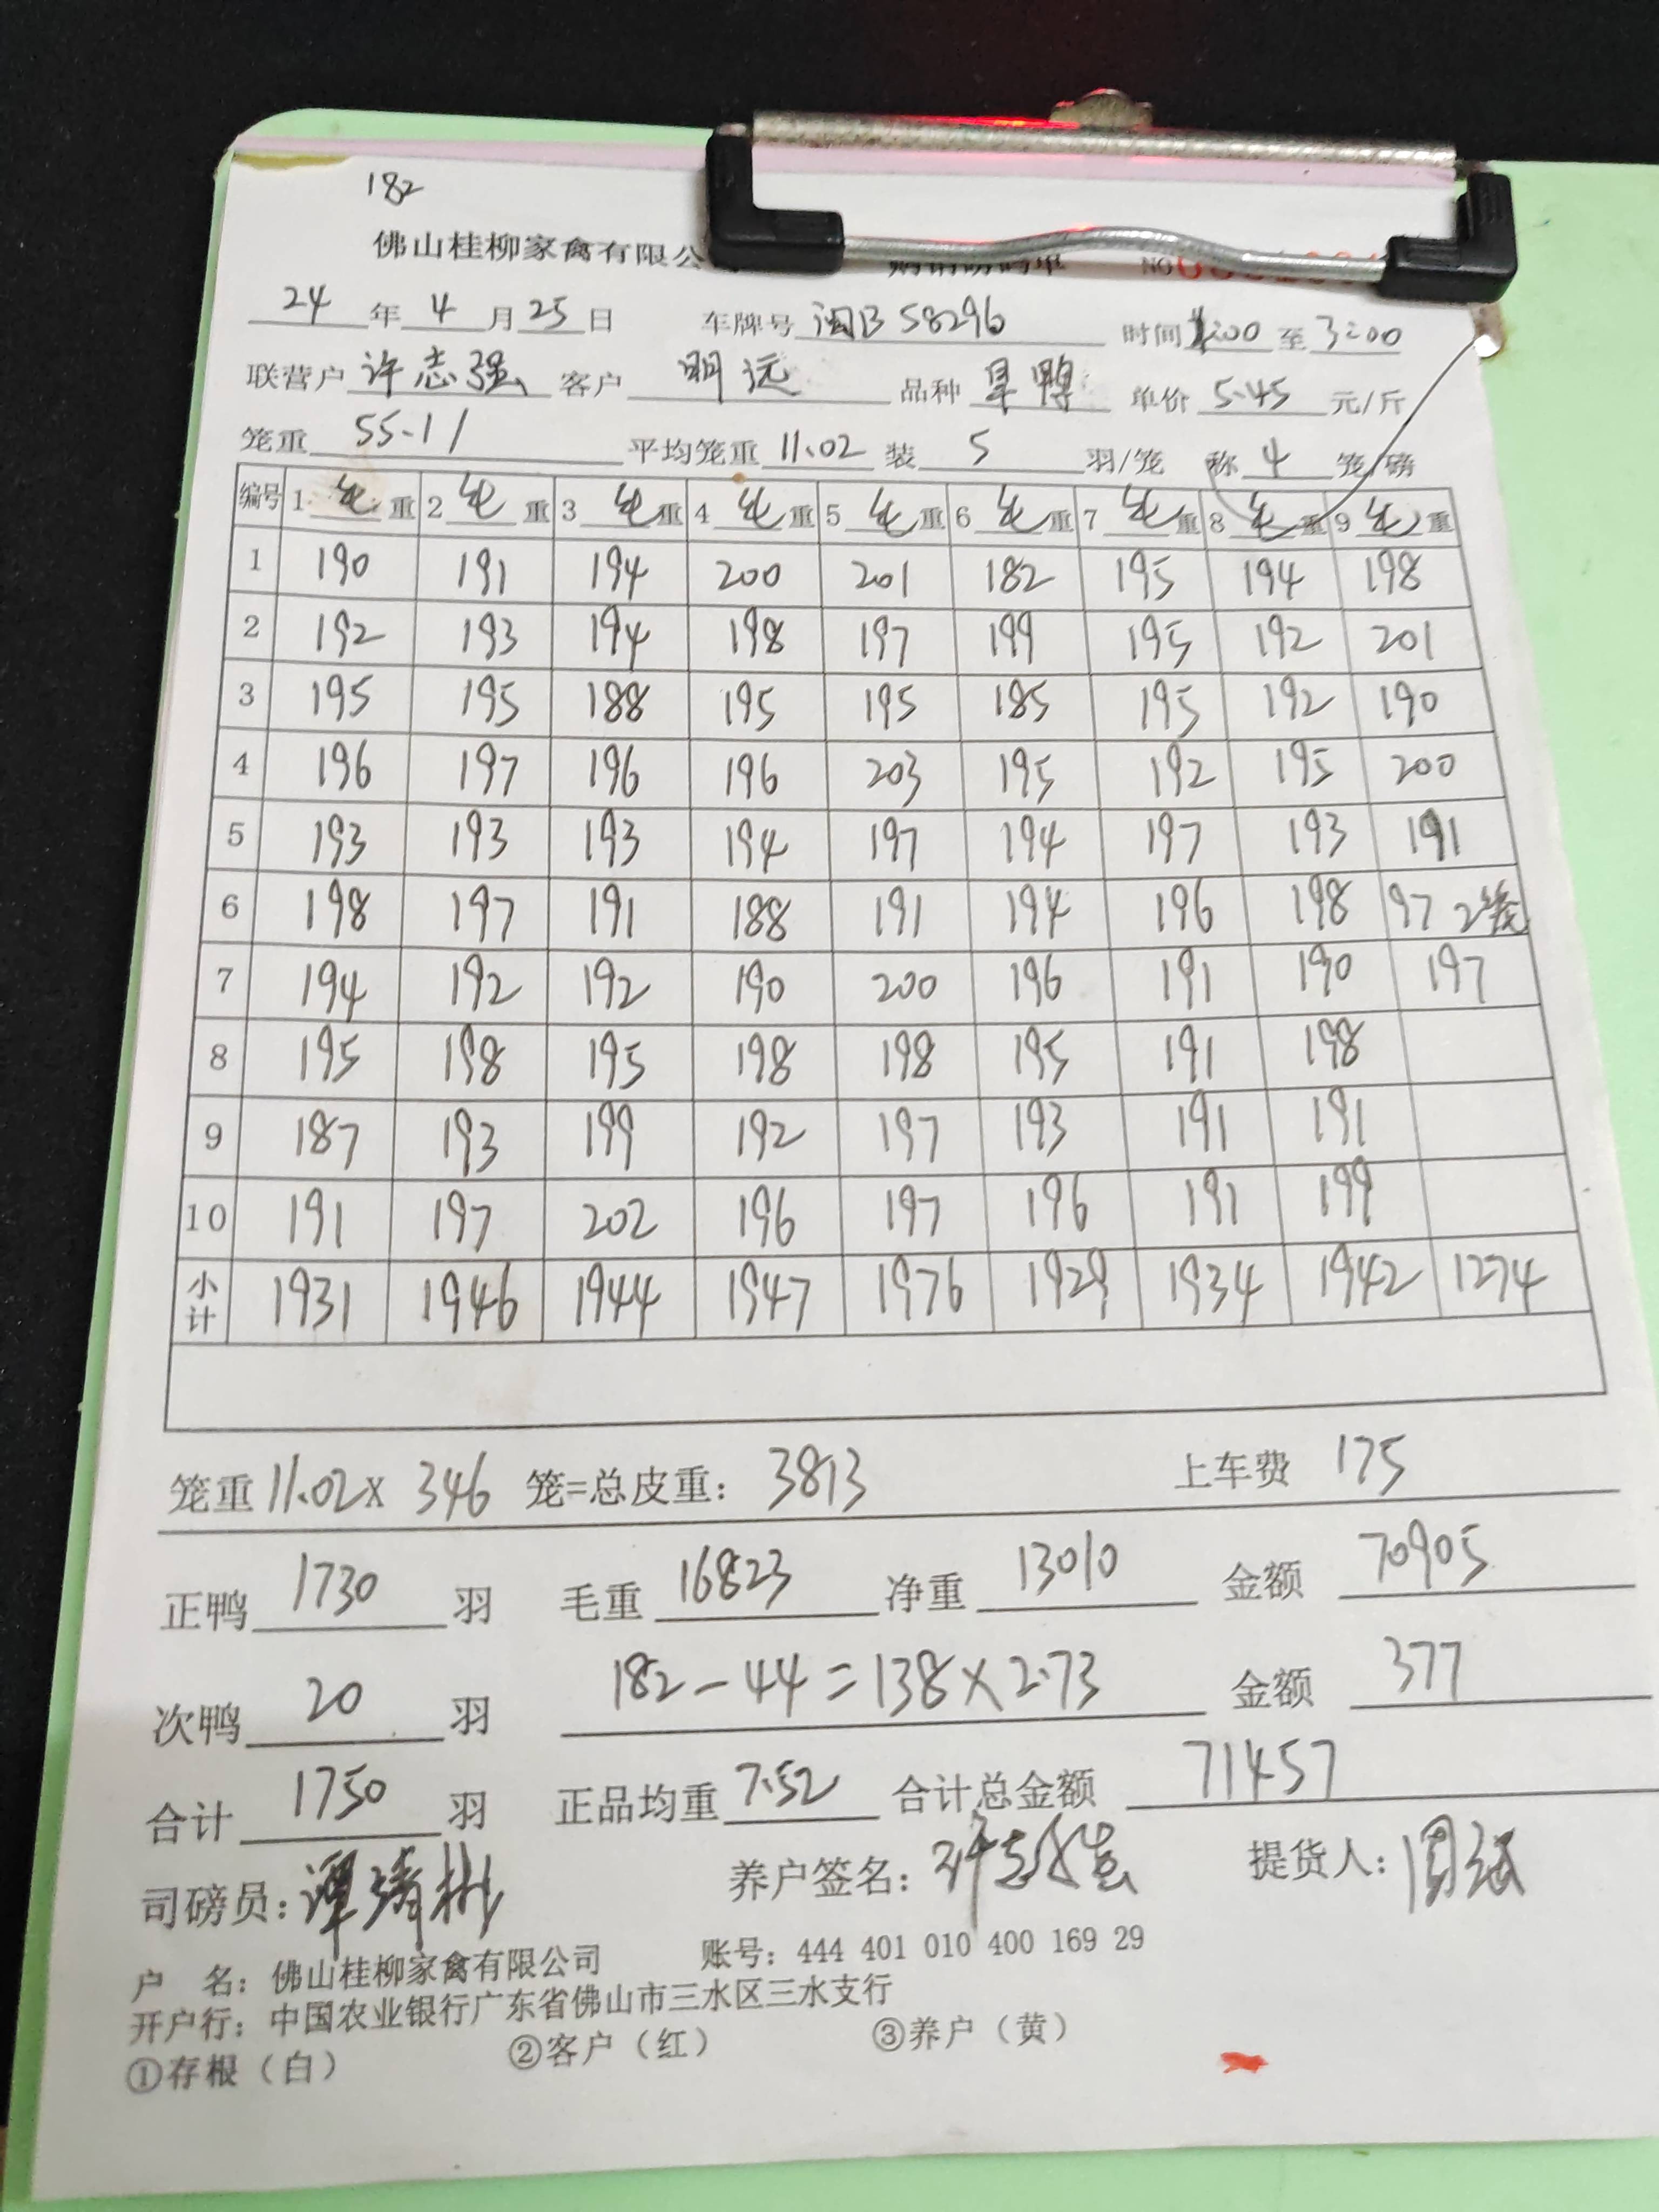 182
佛山桂柳家禽有限公 购销磅码单 NO
24 年 4 月 25 日 车牌号 闽B 58296 时间 1:00 至 3:00
联营户 许志强 客户 明远 品种 旱鸭 单价 5.45 元/斤
笼重 55.1/ 平均笼重 11.02 装 5 羽/笼 称 4 笼/磅
编号 1 毛 重 2 毛 重 3 毛 重 4 毛 重 5 毛 重 6 毛 重 7 毛 重 8 毛 重 9 毛 重
1 190 191 194 200 201 182 195 194 198
2 192 193 194 198 197 199 195 192 201
3 195 195 188 195 195 185 195 192 190
4 196 197 196 196 203 195 192 195 200
5 193 193 193 194 197 194 197 193 191
6 198 197 191 188 191 194 196 198 97 2笼
7 194 192 192 190 200 196 191 190 197
8 195 198 195 198 198 195 191 198
9 187 193 199 192 197 193 191 191
10 191 197 202 196 197 196 191 199
小计 1931 1946 1944 1947 1976 1929 1934 1942 1274
笼重 11.02 X 346 笼=总皮重： 3813 上车费 175
正鸭 1730 羽 毛重 16823 净重 13010 金额 70905
次鸭 20 羽 182-44=138×2.73 金额 377
合计 1750 羽 正品均重 7.52 合计总金额 71457
司磅员： 养户签名： 提货人：
户 名：佛山桂柳家禽有限公司 账号：444 401 010 400 169 29
开户行：中国农业银行广东省佛山市三水区三水支行
①存根（白） ②客户（红） ③养户（黄）